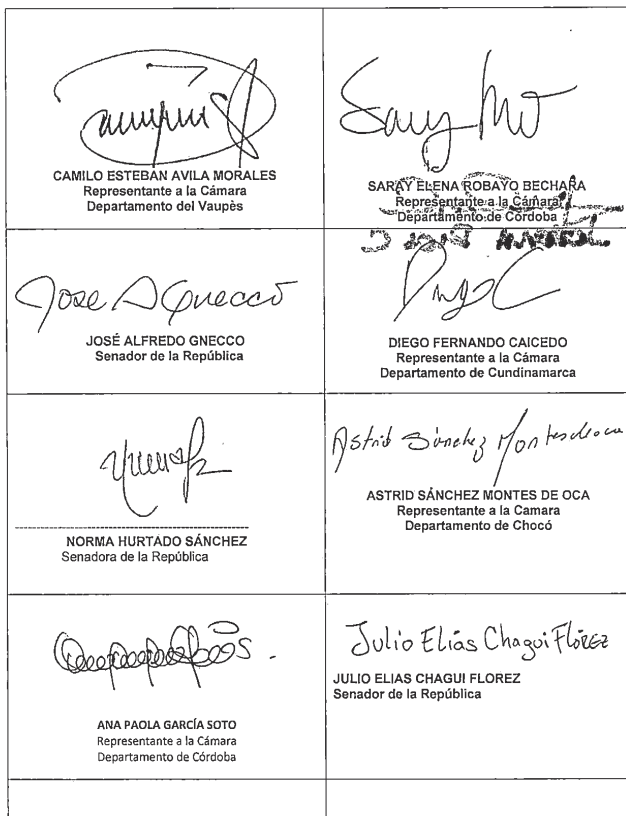 CAMILO ESTEBAN AVILA MORALES
Representante a la Cámara
Departamento del Vaupès
Saray
SARAY ELENA ROBAYO BECHARA
Representante a la Cámara
Departamento de Córdoba
Jose A Gnecco
JOSÉ ALFREDO GNECCO
Senador de la República
DIEGO FERNANDO CAICEDO
Representante a la Cámara
Departamento de Cundinamarca
NORMA HURTADO SÁNCHEZ
Senadora de la República
Astrid Sánchez Montesdeoca
ASTRID SÁNCHEZ MONTES DE OCA
Representante a la Camara
Departamento de Chocó
ANA PAOLA GARCÍA SOTO
Representante a la Cámara
Departamento de Córdoba
Julio Elías Chagui Flórez
JULIO ELIAS CHAGUI FLOREZ
Senador de la República